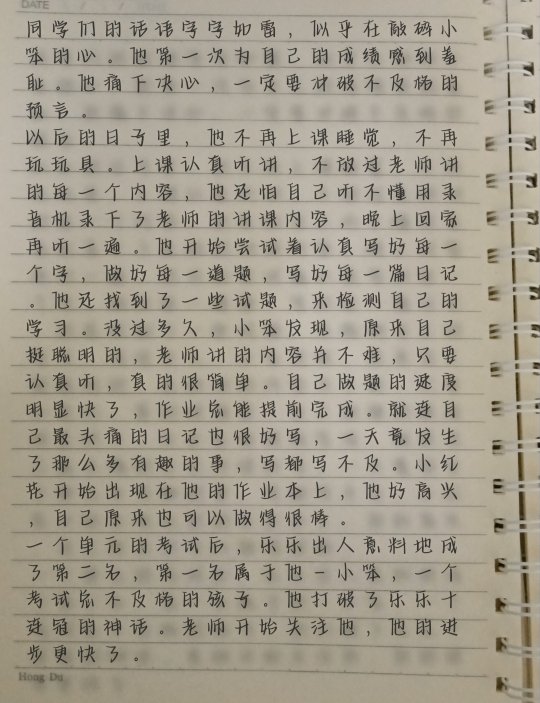 DATE
同学们的话语字字如雷，似乎在敲碎小
笨的心。他第一次为自己的成绩感到羞
耻。他痛下决心，一定要冲破不及格的
预言。
以后的日子里，他不再上课睡觉，不再
玩玩具。上课认真听讲，不放过老师讲
的每一个内容，他还怕自己听不懂用录
音机录下了老师的讲课内容，晚上回家
再听一遍。他开始尝试着认真写好每一
个字，做好每一道题，写好每一篇日记
。他还找到了一些试题，来检测自己的
学习。没过多久，小笨发现，原来自己
挺聪明的，老师讲的内容并不难，只要
认真听，真的很简单。自己做题的速度
明显快了，作业总能提前完成。就连自
己最头痛的日记也很好写，一天竟发生
了那么多有趣的事，写都写不及。小红
花开始出现在他的作业本上，他好高兴
，自己原来也可以做得很棒。
一个单元的考试后，乐乐出人意料地成
了第二名，第一名属于他－小笨，一个
考试总不及格的孩子。他打破了乐乐十
连冠的神话。老师开始关注他，他的进
步更快了。
Hong Du